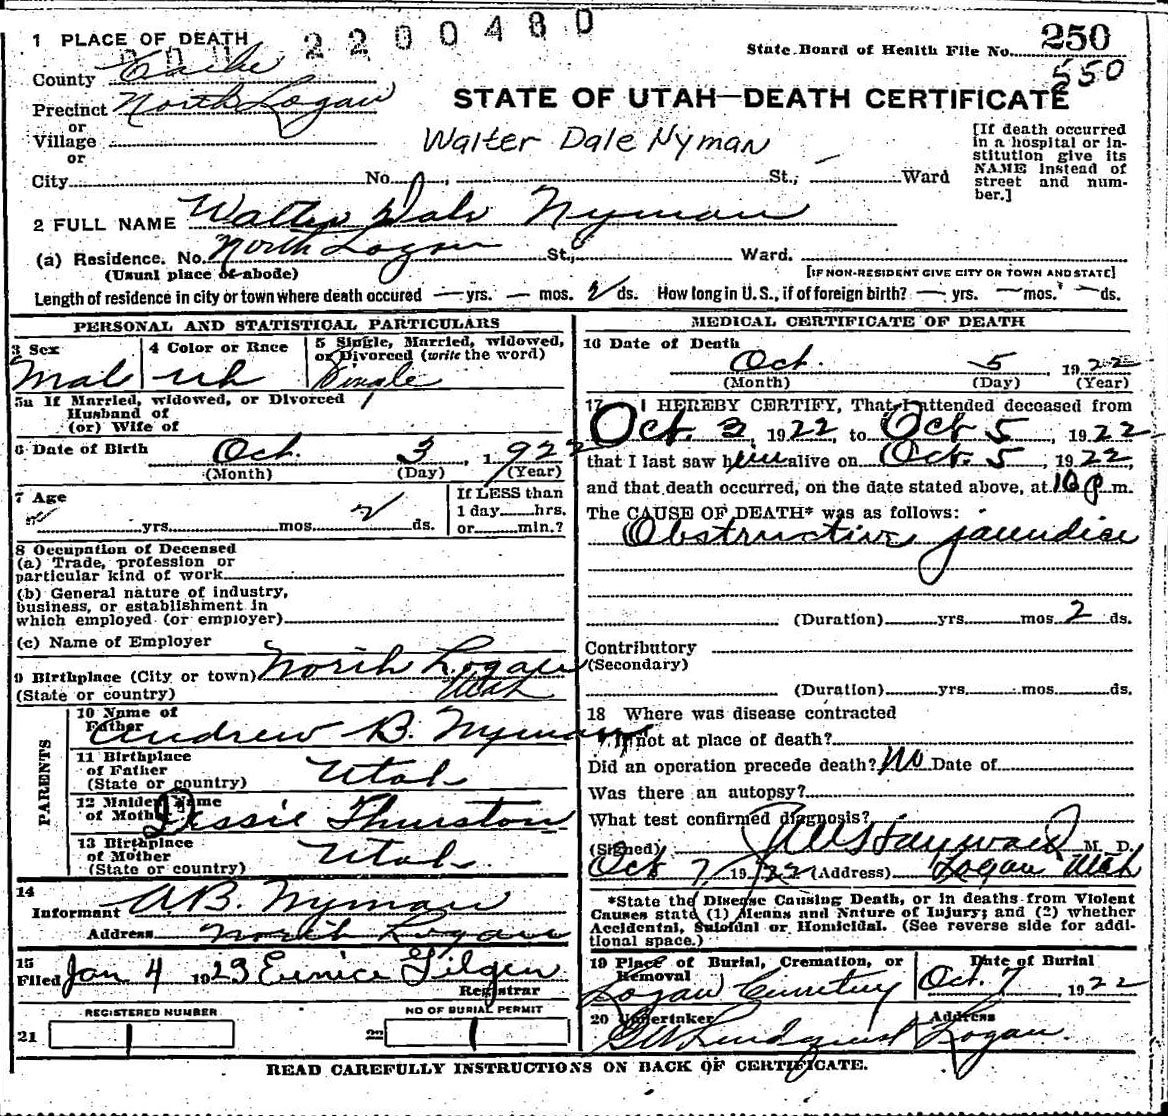 2200480
1 PLACE OF DEATH
State Board of Health File No. 250
550
County Cache
Precinct North Logan
or
Village
or
STATE OF UTAH—DEATH CERTIFICATE
Walter Dale Nyman
[If death occurred
in a hospital or in-
stitution give its
NAME instead of
street and num-
ber.]
City No. St., Ward
2 FULL NAME Walter Dale Nyman
(a) Residence. No. North Logan St., Ward.
(Usual place of abode)
[IF NON-RESIDENT GIVE CITY OR TOWN AND STATE]
Length of residence in city or town where death occured — yrs. — mos. 2 ds. How long in U. S., if of foreign birth? — yrs. — mos. — ds.
PERSONAL AND STATISTICAL PARTICULARS
3 Sex
Male
4 Color or Race
wh
5 Single, Married, widowed,
or Divorced (write the word)
Single
5a If Married, widowed, or Divorced
Husband of
(or) Wife of
6 Date of Birth Oct. 3, 1922
(Month) (Day) (Year)
7 Age
yrs. mos. 2 ds.
If LESS than
1 day hrs.
or min.?
8 Occupation of Deceased
(a) Trade, profession or
particular kind of work
(b) General nature of industry,
business, or establishment in
which employed (or employer)
(c) Name of Employer
9 Birthplace (City or town) North Logan
(State or country) Utah
PARENTS
10 Name of
Father Andrew B. Nyman
11 Birthplace
of Father Utah
(State or country)
12 Maiden Name
of Mother Dessie Thurston
13 Birthplace
of Mother Utah
(State or country)
14
Informant A.B. Nyman
Address North Logan
15
Filed Jan 4 1923 Eunice Gilgen
Registrar
REGISTERED NUMBER
21
NO OF BURIAL PERMIT
22
MEDICAL CERTIFICATE OF DEATH
16 Date of Death
Oct. 5, 1922
(Month) (Day) (Year)
17 I HEREBY CERTIFY, That I attended deceased from
Oct. 3, 1922, to Oct 5, 1922
that I last saw him alive on Oct. 5, 1922,
and that death occurred, on the date stated above, at 10 p m.
The CAUSE OF DEATH* was as follows:
Obstructive jaundice
(Duration) yrs. mos. 2 ds.
Contributory
(Secondary)
(Duration) yrs. mos. ds.
18 Where was disease contracted
if not at place of death?
Did an operation precede death? No Date of
Was there an autopsy?
What test confirmed diagnosis?
(Signed) Hayward M. D.
Oct 7, 1922 (Address) Logan Utah
*State the Disease Causing Death, or in deaths from Violent
Causes state (1) Means and Nature of Injury; and (2) whether
Accidental, Suicidal or Homicidal. (See reverse side for addi-
tional space.)
19 Place of Burial, Cremation, or
Removal
Logan Cemetery
Date of Burial
Oct. 7 1922
20 Undertaker
Lundquist
Address
Logan.
READ CAREFULLY INSTRUCTIONS ON BACK OF CERTIFICATE.